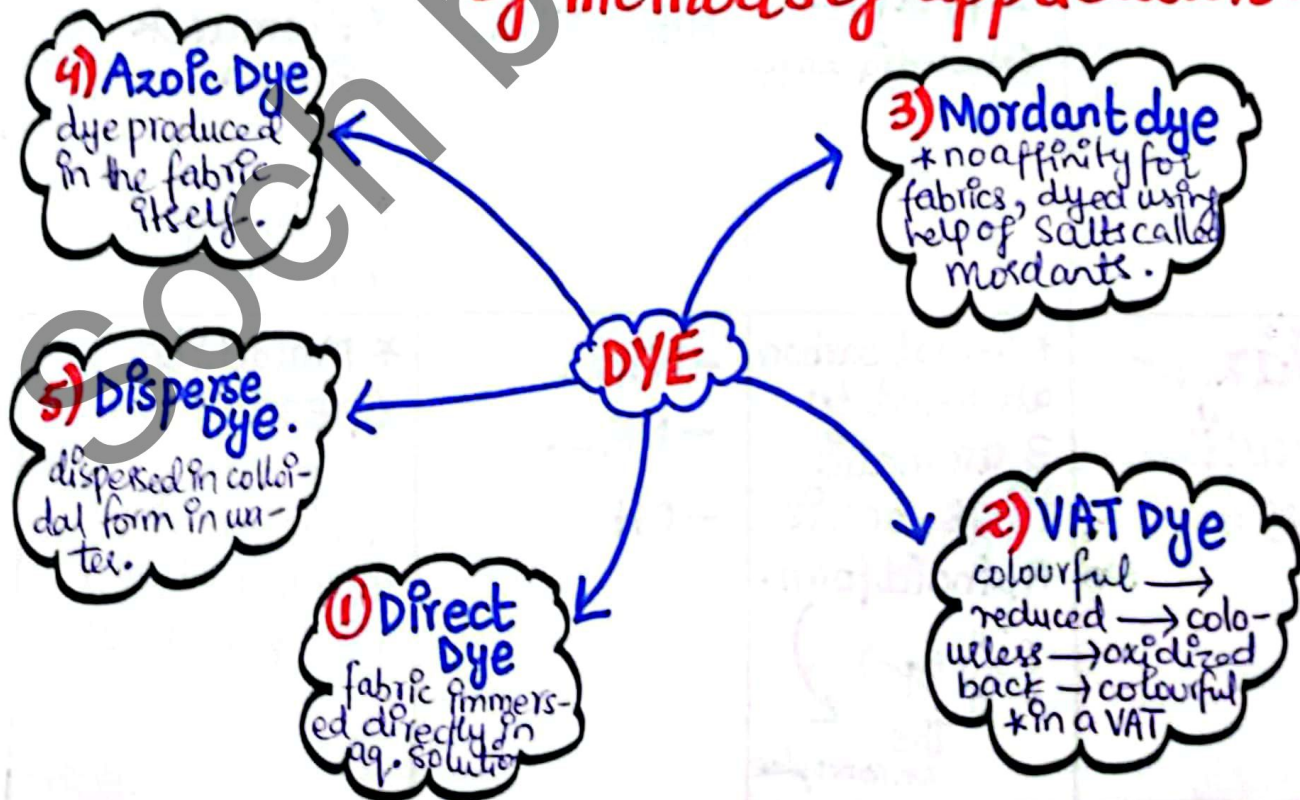 methods of application
4) Azoic Dye
dye produced
in the fabric
itself.
3) Mordant dye
*no affinity for
fabrics, dyed using
help of salts called
mordants.
DYE
5) Disperse
Dye.
dispersed in colloi-
dal form in wa-
ter.
1) Direct
Dye
fabric immers-
ed directly in
aq. solutio
2) VAT Dye
colourful →
reduced → colo-
urless → oxidized
back → colourful
*in a VAT
Soch b